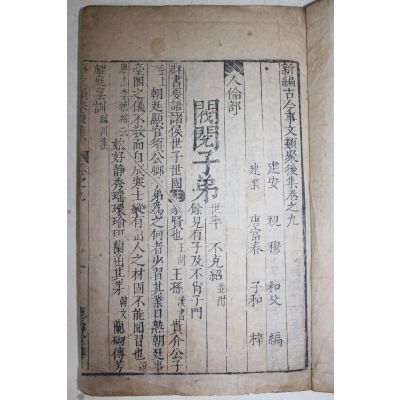 新編古今事文類聚後集卷之九
建安 祝穆 和父 編
建業 唐富春 子和 梓
人倫部
閥閱子弟 世率不克紹並附 餘見有子及不肖子門
群書要語諸侯世子世國 賢也王制 王孫漢書 貴介公子
朝廷顯官須公卿子弟為之何者少習其業目熟朝廷事
臺閣之儀不敎而自成寒士縱有出人之材固不能閑習也
松好靜秀璠璵瑜珥蘭茁其芽韓文 蘭砌傳芳
鯉庭